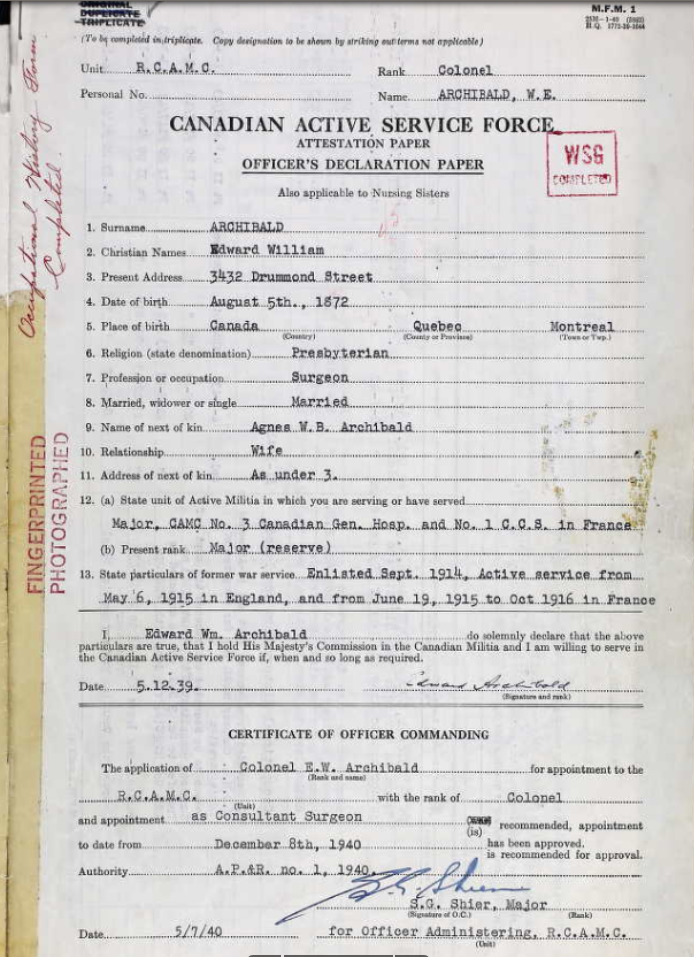 ORIGINAL
DUPLICATE
TRIPLICATE
M.F.M. 1
(To be completed in triplicate. Copy designation to be shown by striking out terms not applicable)
Unit R.C.A.M.C. Rank Colonel
Personal No. Name ARCHIBALD, W.E.
CANADIAN ACTIVE SERVICE FORCE
ATTESTATION PAPER
OFFICER'S DECLARATION PAPER
Also applicable to Nursing Sisters
WSG
COMPLETED
Occupational History Form
Completed.
FINGERPRINTED
PHOTOGRAPHED
1. Surname ARCHIBALD
2. Christian Names Edward William
3. Present Address 3432 Drummond Street
4. Date of birth August 5th., 1872
5. Place of birth Canada Quebec Montreal
(Country) (County or Province) (Town or Twp.)
6. Religion (state denomination) Presbyterian
7. Profession or occupation Surgeon
8. Married, widower or single Married
9. Name of next of kin Agnes W.B. Archibald
10. Relationship Wife
11. Address of next of kin As under 3.
12. (a) State unit of Active Militia in which you are serving or have served
Major, CAMC No. 3 Canadian Gen. Hosp. and No. 1 C.C.S. in France
(b) Present rank Major (reserve)
13. State particulars of former war service Enlisted Sept. 1914, Active service from
May 6, 1915 in England, and from June 19, 1915 to Oct 1916 in France
I, Edward Wm. Archibald do solemnly declare that the above
particulars are true, that I hold His Majesty's Commission in the Canadian Militia and I am willing to serve in
the Canadian Active Service Force if, when and so long as required.
Date 5.12.39. Edward Archibald
(Signature and rank)
CERTIFICATE OF OFFICER COMMANDING
The application of Colonel E.W. Archibald for appointment to the
(Rank and name)
R.C.A.M.C. with the rank of Colonel
(Unit)
and appointment as Consultant Surgeon (is) recommended, appointment
to date from December 8th, 1940 has been approved.
is recommended for approval.
Authority A.P.&R. no. 1, 1940.
S.G. Shier
S.G. Shier, Major
(Signature of O.C.) (Rank)
Date 5/7/40 for Officer Administering, R.C.A.M.C.
(Unit)